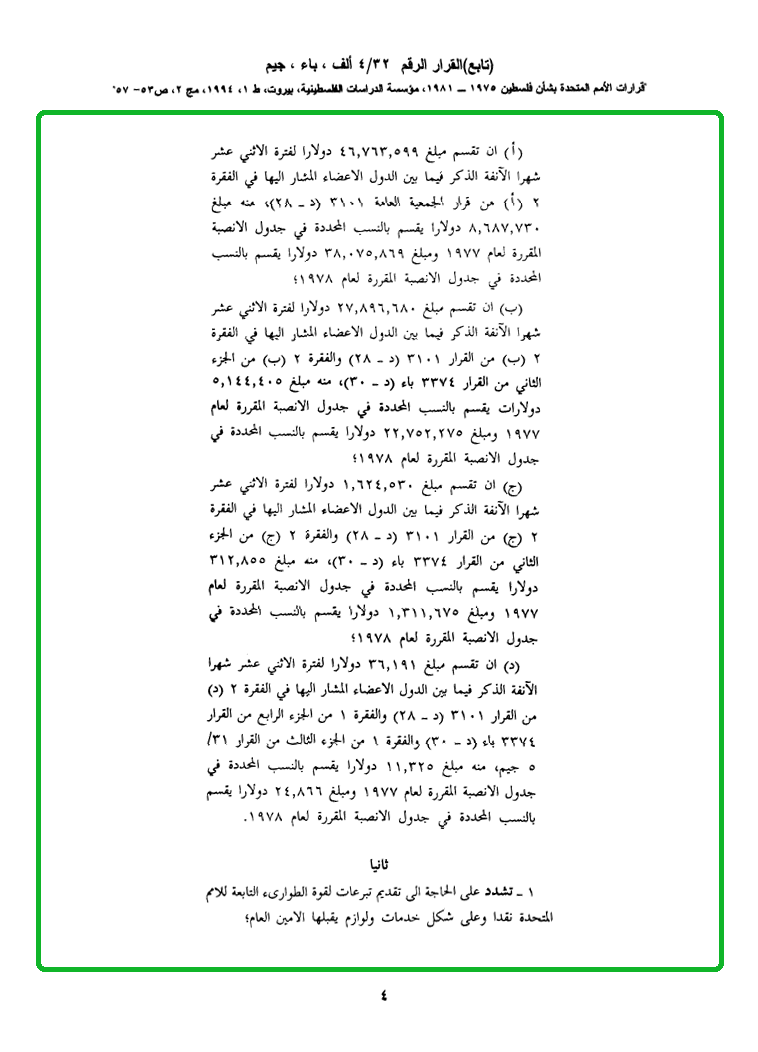 (تابع)القرار الرقم ٤/٣٢ ألف ، باء ، جيم
"قرارات الأمم المتحدة بشأن فلسطين ١٩٧٥ ــ ١٩٨١، مؤسسة الدراسات الفلسطينية، بيروت، ط ١، ١٩٩٤، مج ٢، ص٥٣– ٥٧"
(أ) ان تقسم مبلغ ٤٦,٧٦٣,٥٩٩ دولارا لفترة الاثني عشر
شهرا الآنفة الذكر فيما بين الدول الاعضاء المشار اليها في الفقرة
٢ (أ) من قرار الجمعية العامة ٣١٠١ (د ـ ٢٨)، منه مبلغ
٨,٦٨٧,٧٣٠ دولارا يقسم بالنسب المحددة في جدول الانصبة
المقررة لعام ١٩٧٧ ومبلغ ٣٨,٠٧٥,٨٦٩ دولارا يقسم بالنسب
المحددة في جدول الانصبة المقررة لعام ١٩٧٨؛
(ب) ان تقسم مبلغ ٢٧,٨٩٦,٦٨٠ دولارا لفترة الاثني عشر
شهرا الآنفة الذكر فيما بين الدول الاعضاء المشار اليها في الفقرة
٢ (ب) من القرار ٣١٠١ (د ـ ٢٨) والفقرة ٢ (ب) من الجزء
الثاني من القرار ٣٣٧٤ باء (د ـ ٣٠)، منه مبلغ ٥,١٤٤,٤٠٥
دولارات يقسم بالنسب المحددة في جدول الانصبة المقررة لعام
١٩٧٧ ومبلغ ٢٢,٧٥٢,٢٧٥ دولارا يقسم بالنسب المحددة في
جدول الانصبة المقررة لعام ١٩٧٨؛
(ج) ان تقسم مبلغ ١,٦٢٤,٥٣٠ دولارا لفترة الاثني عشر
شهرا الآنفة الذكر فيما بين الدول الاعضاء المشار اليها في الفقرة
٢ (ج) من القرار ٣١٠١ (د ـ ٢٨) والفقرة ٢ (ج) من الجزء
الثاني من القرار ٣٣٧٤ باء (د ـ ٣٠)، منه مبلغ ٣١٢,٨٥٥
دولارا يقسم بالنسب المحددة في جدول الانصبة المقررة لعام
١٩٧٧ ومبلغ ١,٣١١,٦٧٥ دولارا يقسم بالنسب المحددة في
جدول الانصبة المقررة لعام ١٩٧٨؛
(د) ان تقسم مبلغ ٣٦,١٩١ دولارا لفترة الاثني عشر شهرا
الآنفة الذكر فيما بين الدول الاعضاء المشار اليها في الفقرة ٢ (د)
من القرار ٣١٠١ (د ـ ٢٨) والفقرة ١ من الجزء الرابع من القرار
٣٣٧٤ باء (د ـ ٣٠) والفقرة ١ من الجزء الثالث من القرار ٣١/
٥ جيم، منه مبلغ ١١,٣٢٥ دولارا يقسم بالنسب المحددة في
جدول الانصبة المقررة لعام ١٩٧٧ ومبلغ ٢٤,٨٦٦ دولارا يقسم
بالنسب المحددة في جدول الانصبة المقررة لعام ١٩٧٨.
ثانيا
١ ـ تشدد على الحاجة الى تقديم تبرعات لقوة الطوارىء التابعة للامم
المتحدة نقدا وعلى شكل خدمات ولوازم يقبلها الامين العام؛
٤